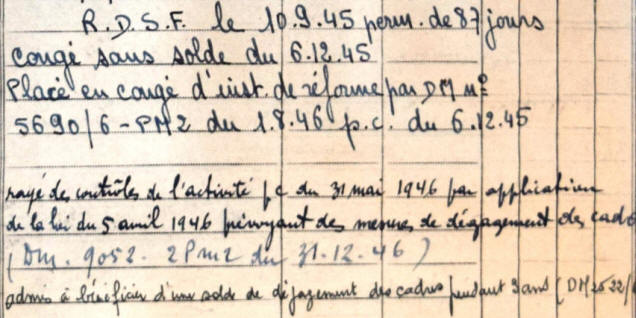 R.D.S.F. le 10.9.45 perm. de 87 jours
congé sans solde du 6.12.45
Placé en congé d'inst. de réforme par DM n°
5690/6-PM2 du 1.8.46 p.c. du 6.12.45
rayé des contrôles de l'activité p c du 31 mai 1946 par application
de la loi du 5 avril 1946 prévoyant des mesures de dégagement des cad
(DM. 9052. 2PM2 du 31.12.46)
admis à bénéficier d'une solde de dégagement des cadres pendant 3 ans (DM 2522/